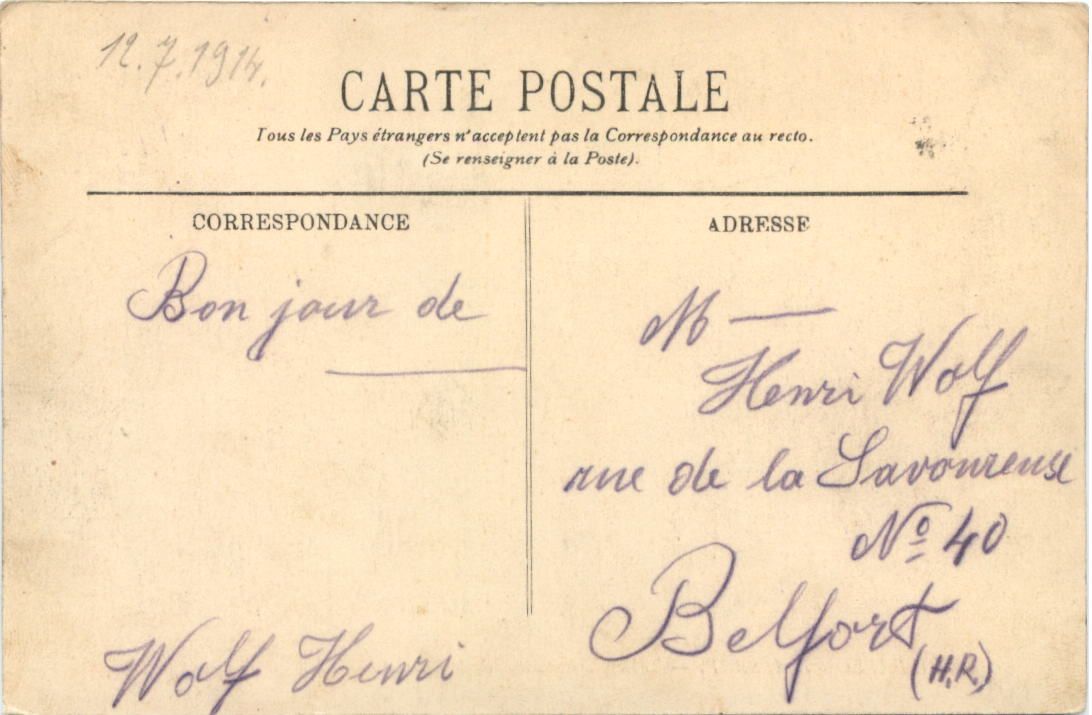 12.7.1914.
CARTE POSTALE
Tous les Pays étrangers n'acceptent pas la Correspondance au recto.
(Se renseigner à la Poste).
CORRESPONDANCE
Bon jour de
Wolf Henri
ADRESSE
M
Henri Wolf
rue de la Savoureuse
Nº 40
Belfort
(H.R.)